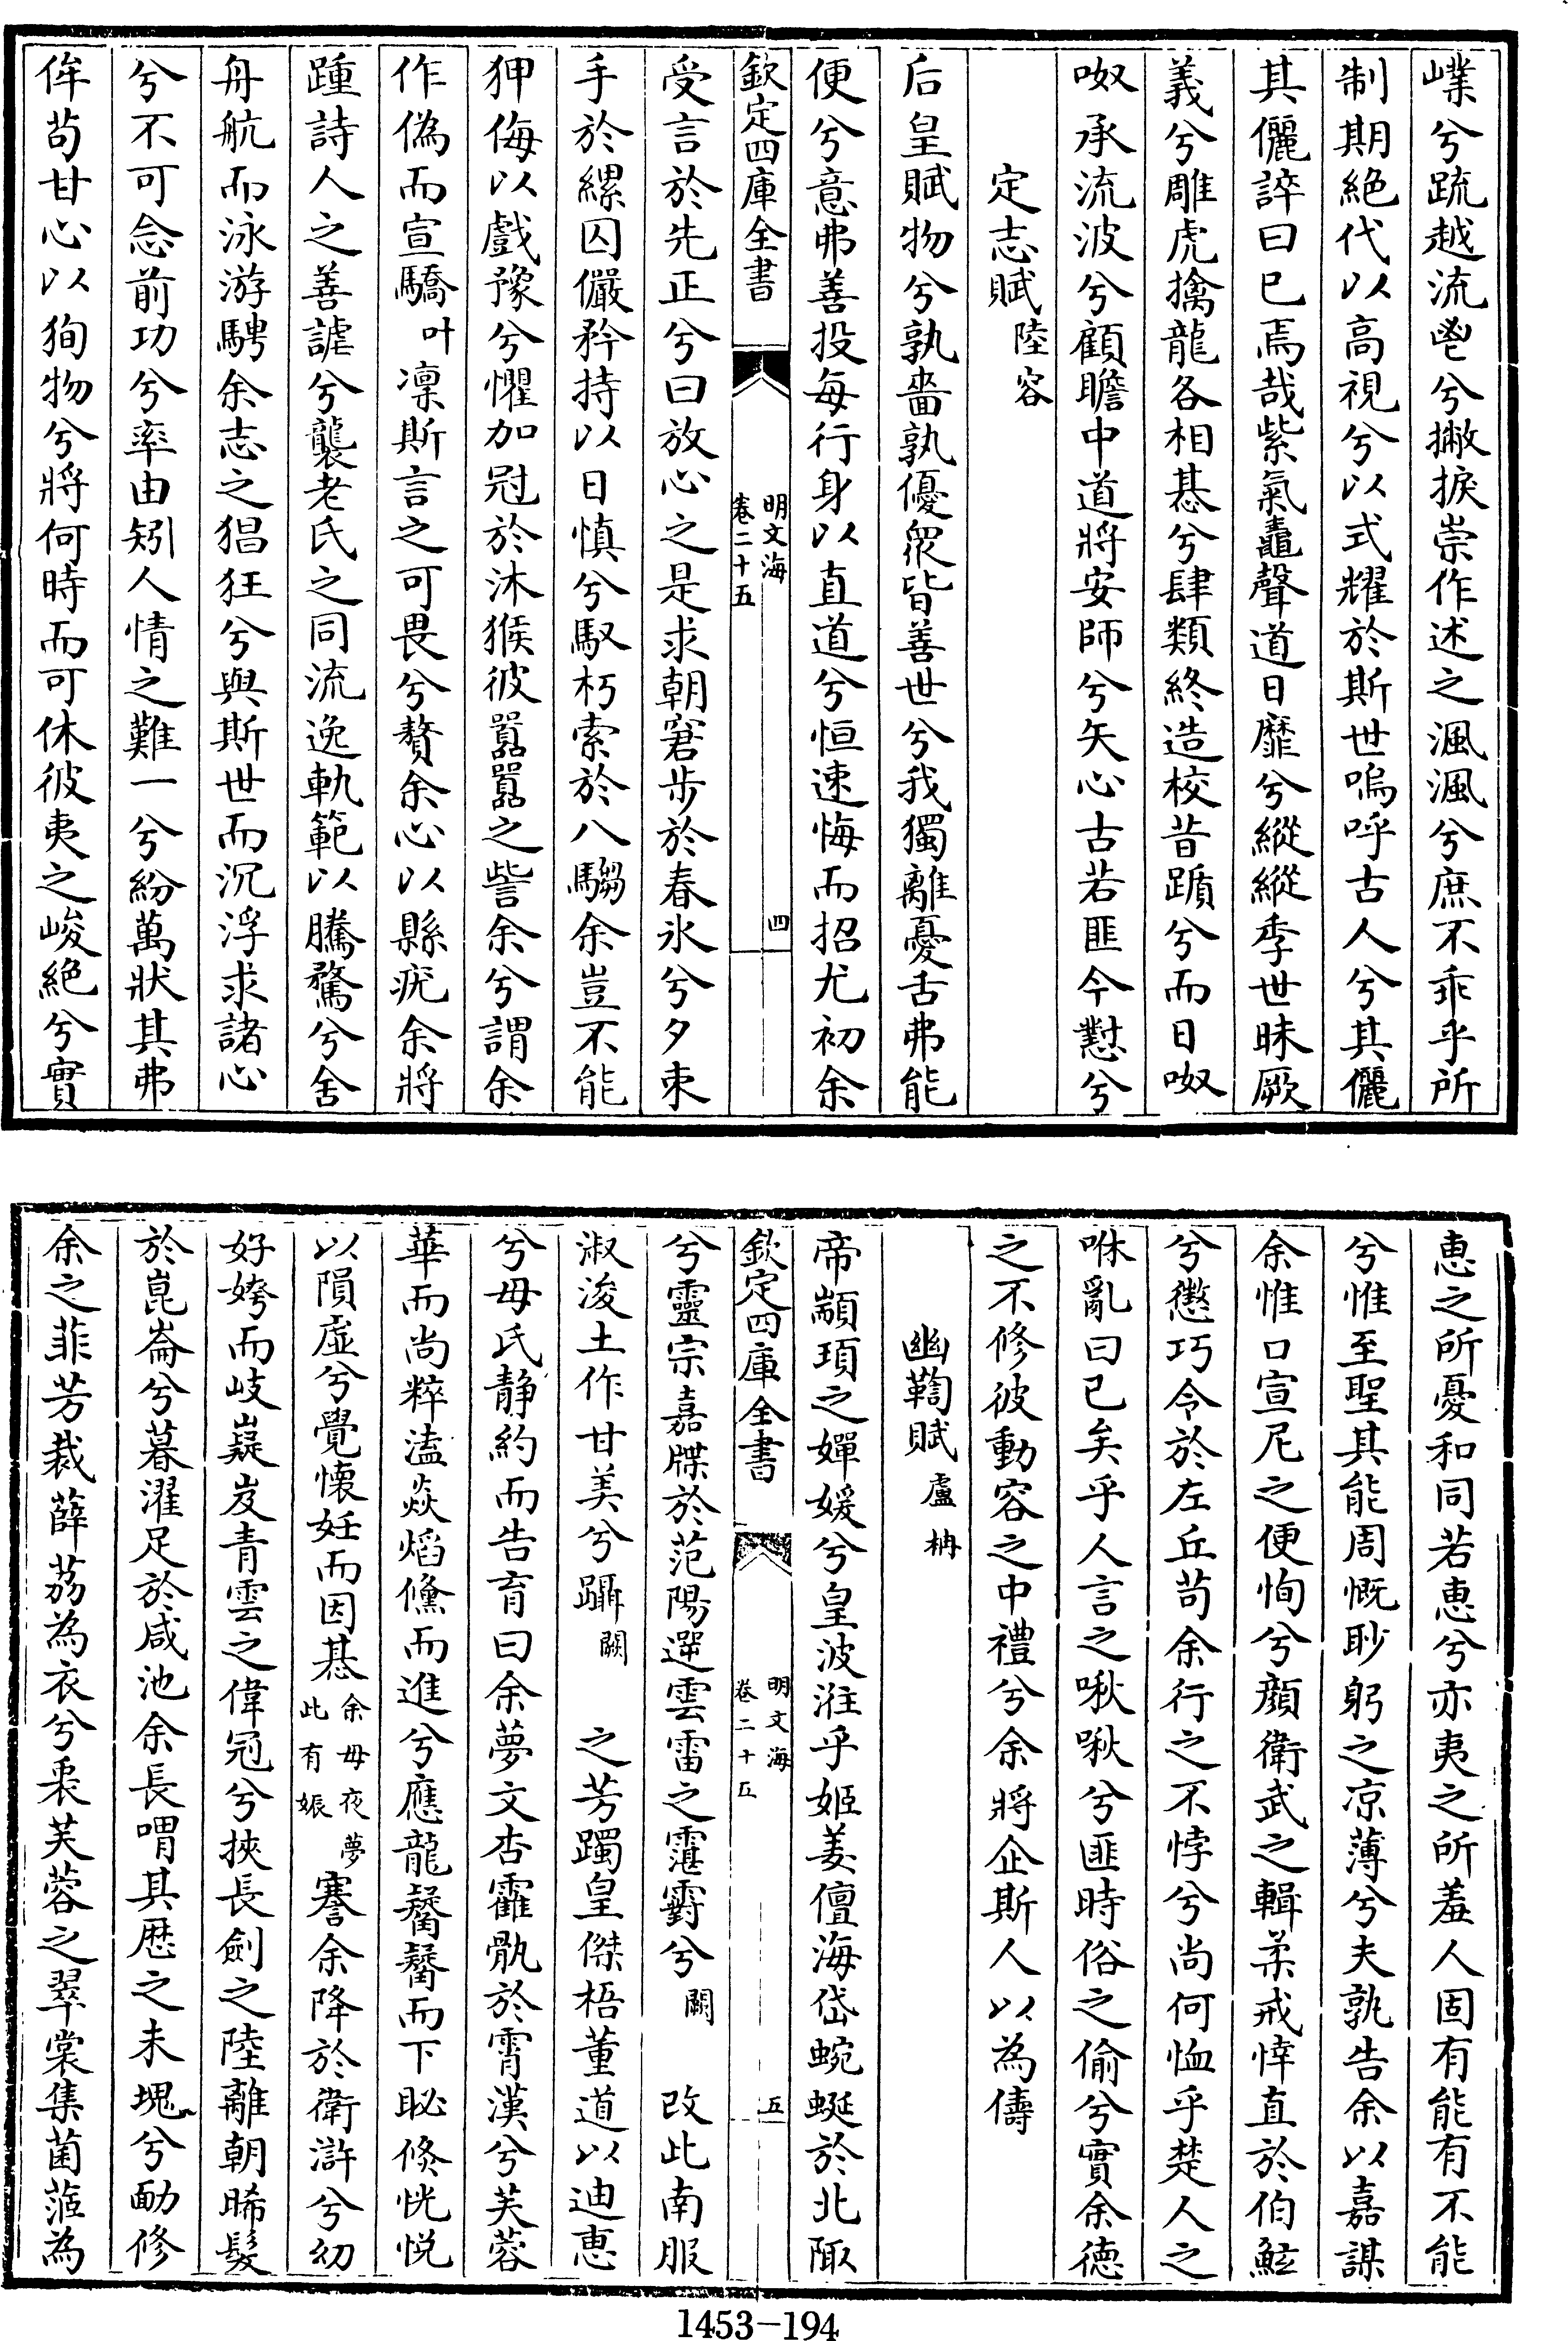 嶫兮疏越流鬯兮撇捩崇作述之渢渢兮庶不乖乎所
制期絕代以高視兮以式耀於斯世嗚呼古人兮其儷
其儷誶曰已焉哉紫氣鼃聲道日靡兮縱縱季世昧厥
義兮雕虎擒龍各相惎兮肆類終造校昔蹟兮而日呶
呶承流波兮顧瞻中道將安師兮矢心古若匪今懟兮
定志賦 陸容
后皇賦物兮孰嗇孰優衆皆善世兮我獨離憂舌弗能
便兮意弗善投每行身以直道兮恒速悔而招尤初余
欽定四庫全書 明文海 卷二十五 四
受言於先正兮曰放心之是求朝窘步於春氷兮夕束
手於縲囚儼矜持以日慎兮馭朽索於八騶余豈不能
狎侮以戲豫兮懼加冠於沐猴彼囂囂之訾余兮謂余
作偽而宣驕叶凜斯言之可畏兮贅余心以縣疣余將
踵詩人之善謔兮襲老氏之同流逸軌範以騰騖兮舍
舟航而泳游騁余志之猖狂兮與斯世而沉浮求諸心
兮不可念前功兮率由矧人情之難一兮紛萬狀其弗
侔苟甘心以狥物兮將何時而可休彼夷之峻絕兮實
惠之所憂和同若惠兮亦夷之所羞人固有能有不能
兮惟至聖其能周慨眇躬之凉薄兮夫孰告余以嘉謀
余惟口宣尼之便恂兮顏衛武之輯柔戒悻直於伯鮌
兮懲巧令於左丘苟余行之不悖兮尚何恤乎楚人之
咻亂曰已矣乎人言之啾啾兮匪時俗之偷兮實余德
之不修彼動容之中禮兮余將企斯人以為儔
幽鞫賦 盧柟
帝顓頊之嬋媛兮皇波溎乎姬姜儃海岱蜿蜒於北陬
欽定四庫全書 明文海 卷二十五 五
兮靈宗嘉牒於范陽選雲雷之霮霨兮闕 改此南服
淑浚土作甘美兮躡闕 之芳躅皇傑梧董道以迪惠
兮母氏靜約而告育曰余夢文杏靃骩於霄漢兮芙蓉
華而尚粹溘焱熖儵而進兮應龍鬐鬐而下䀣倏恍悅
以隕虛兮覺懷妊而因惎余母夜夢此有娠謇余降於衛滸兮幼
好姱而岐嶷岌青雲之偉冠兮挾長劍之陸離朝晞髮
於崑崙兮暮濯足於咸池余長喟其厯之未塊兮勔修
余之菲芳裁薜荔為衣兮褁芙蓉之翠裳集菌𦳝為
1453-194